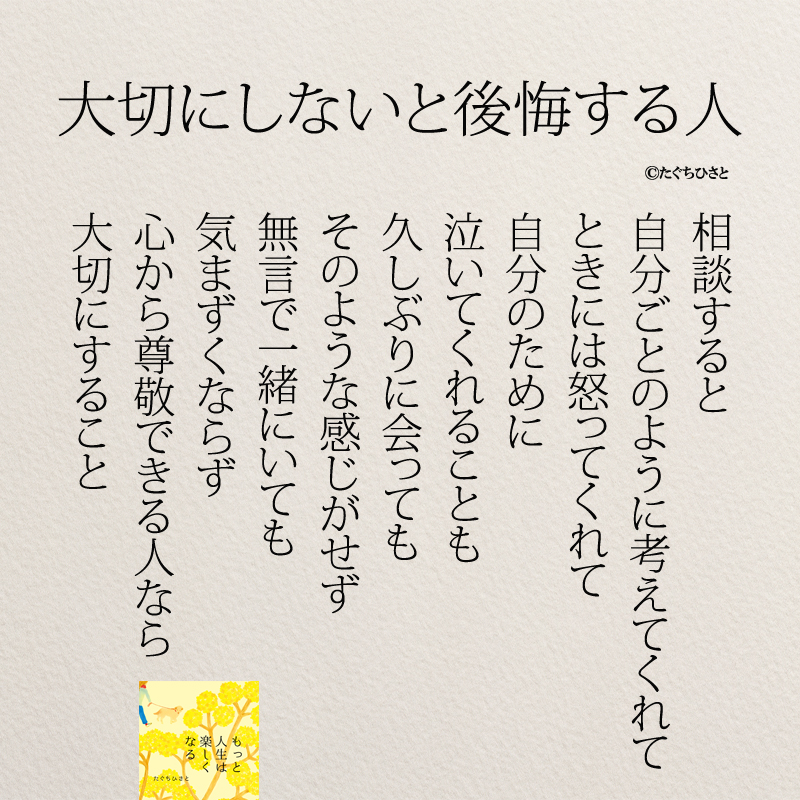 大切にしないと後悔する人
©たぐちひさと
相談すると
自分ごとのように考えてくれて
ときには怒ってくれて
自分のために
泣いてくれることも
久しぶりに会っても
そのような感じがせず
無言で一緒にいても
気まずくならず
心から尊敬できる人なら
大切にすること
もっと
人生は
楽しく
なる
たぐちひさと